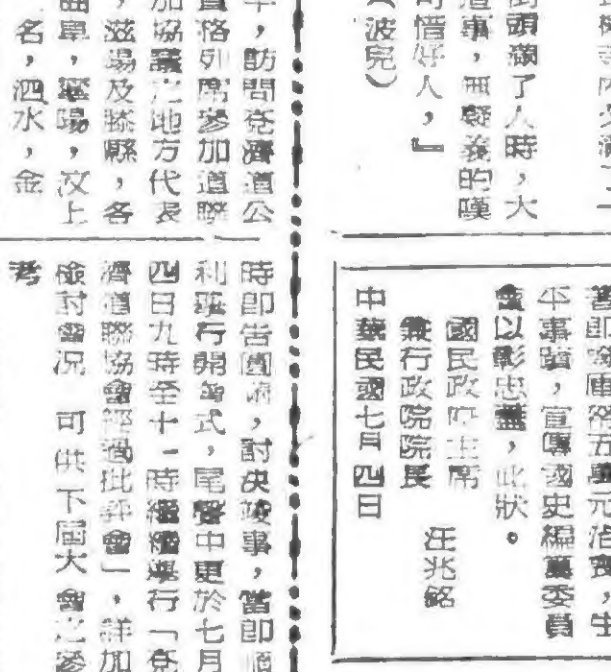 街頭擠了人時，大
事，無疑義的嘆
可惜好人，』
（波兒）
國庫 五萬元治喪，生
平事蹟，宣 國史編纂委員
會以彰忠藎，此狀。
國民政府主席
兼行政院院長
汪兆銘
中華民國七月四日
，訪問兗濟道公
資格列席參加道聯
加協議之地方代表
，滋陽及滕縣，各
曲阜，寧陽，汶上
名，泗水，金
時即告圓滿，討決 事，當即順
利 行閉會式，尾聲中更於七月
四日九時至十一時繼續舉行「兗
濟道聯協會經過批評會」，詳加
檢討會況 可供下屆大會之參
考